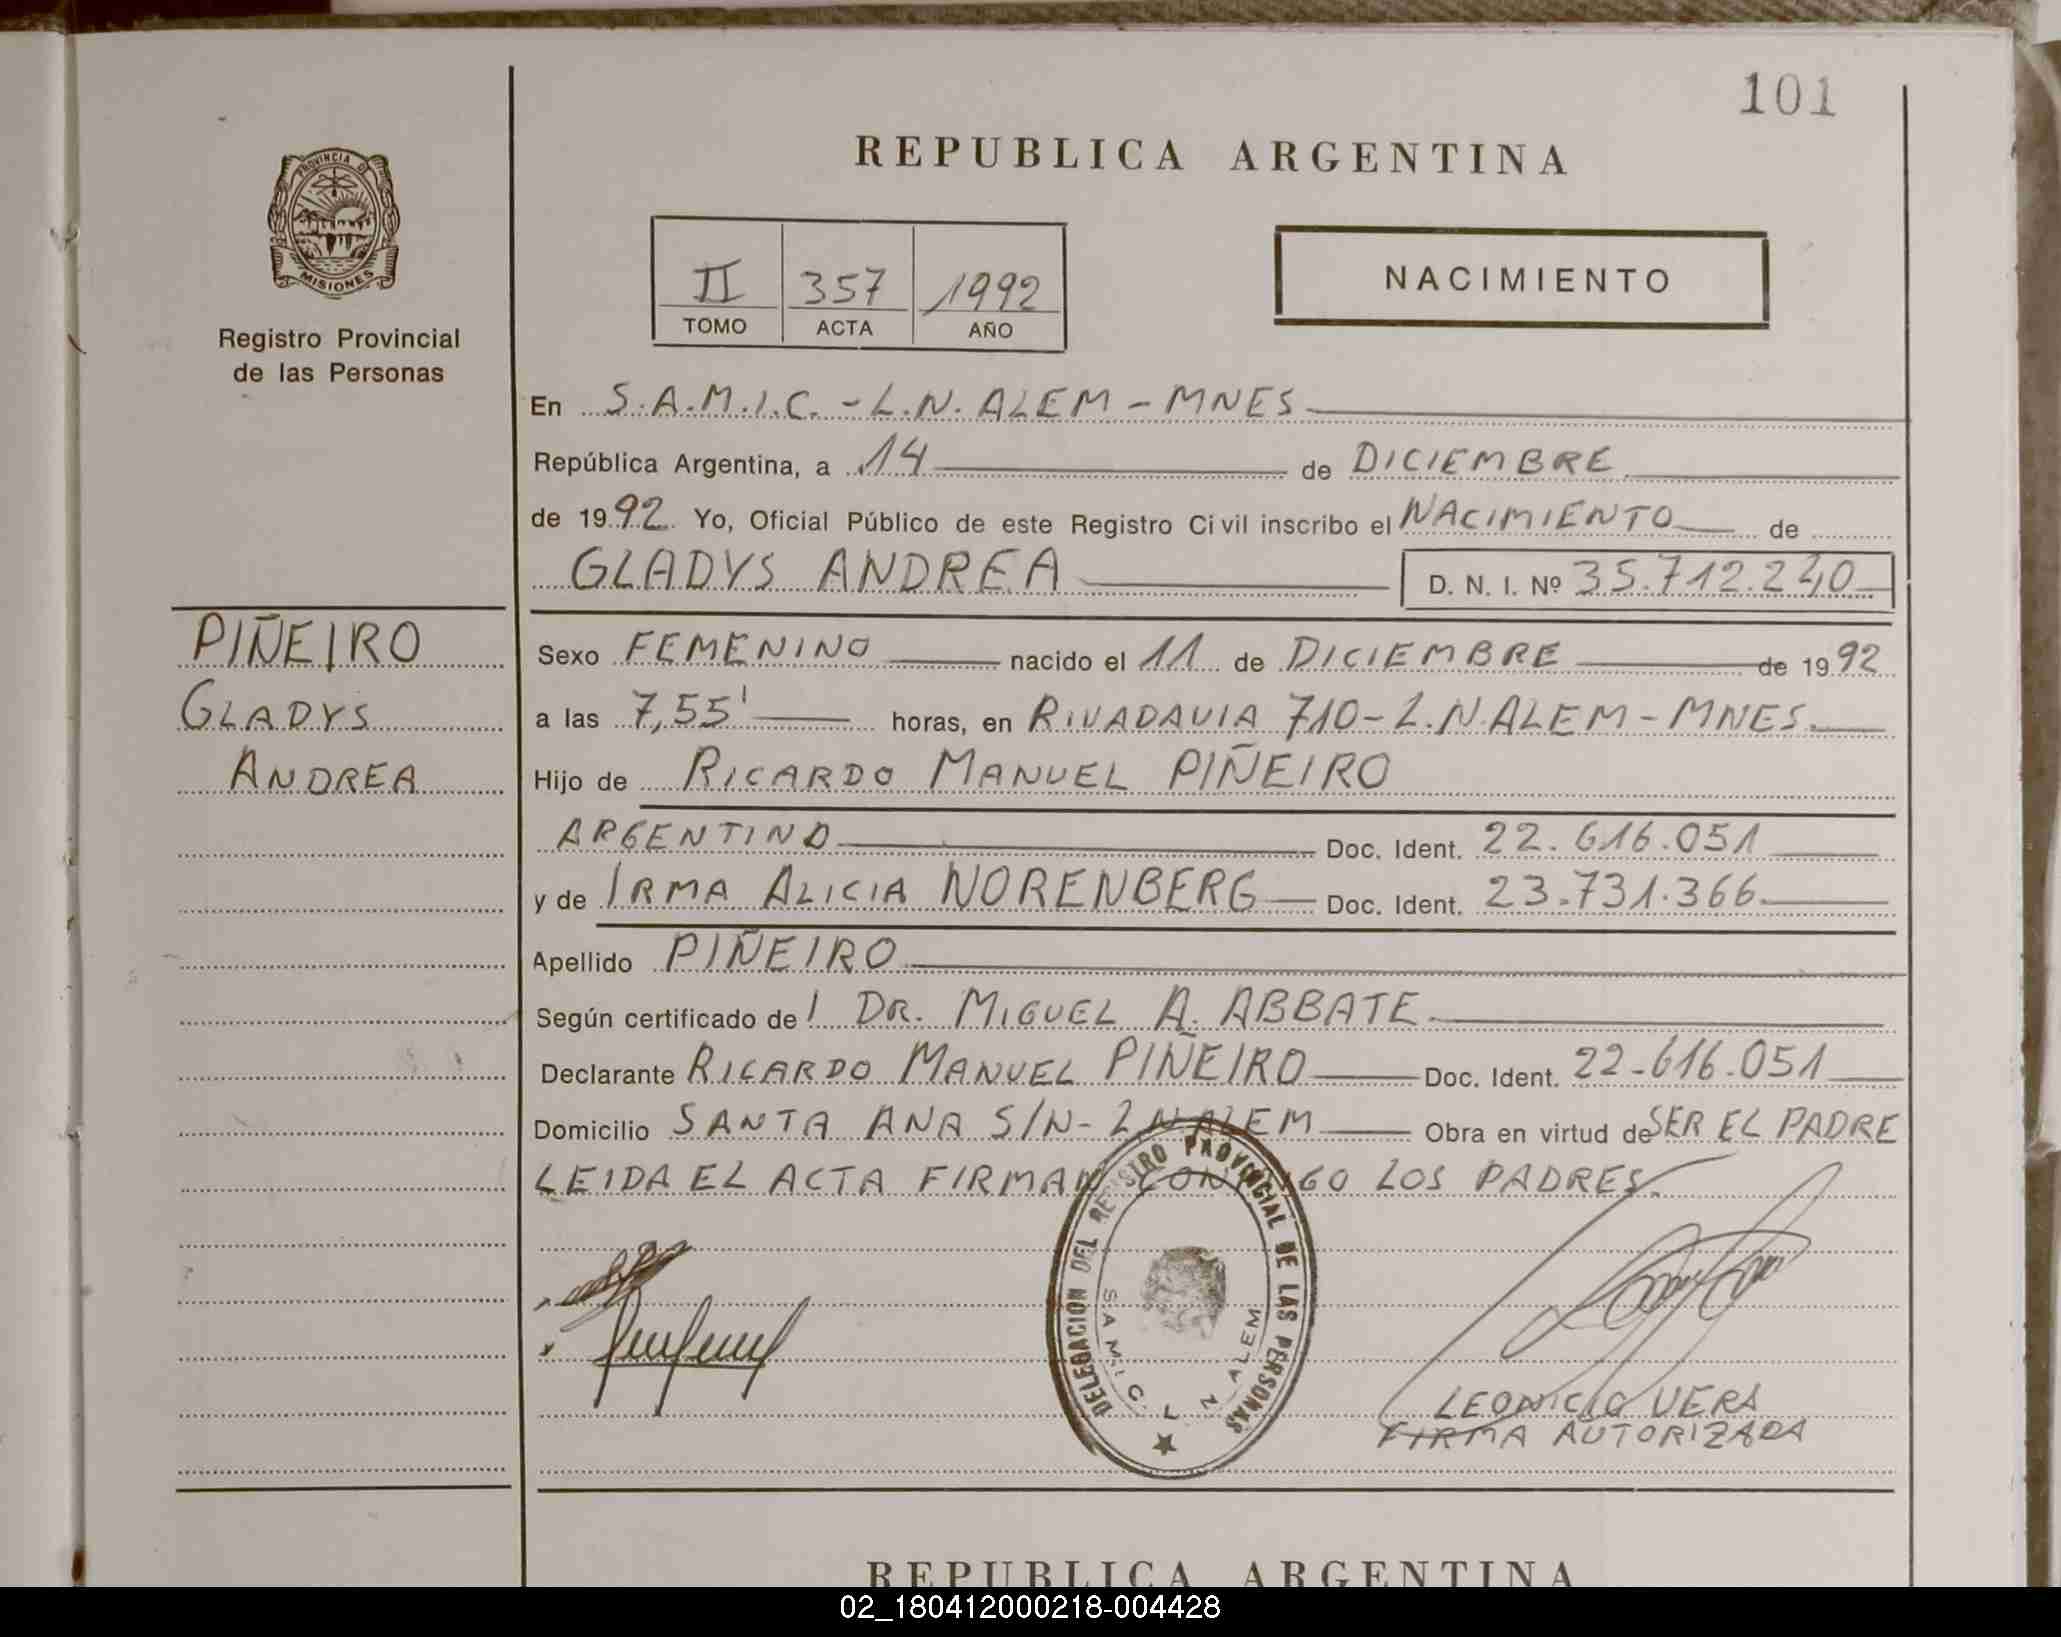 101
REPUBLICA ARGENTINA
PROVINCIA DE
MISIONES
Registro Provincial
de las Personas
II 357 1992
TOMO ACTA AÑO
NACIMIENTO
En S.A.M.I.C. - L.N. ALEM - MNES
República Argentina, a 14 de DICIEMBRE
de 1992 Yo, Oficial Público de este Registro Civil inscribo el NACIMIENTO de
GLADYS ANDREA D. N. I. Nº 35.712.240
PIÑEIRO
GLADYS
ANDREA
Sexo FEMENINO nacido el 11 de DICIEMBRE de 1992
a las 7,55' horas, en RIVADAVIA 710 - L.N. ALEM - MNES.
Hijo de RICARDO MANUEL PIÑEIRO
ARGENTINO Doc. Ident. 22.616.051
y de IRMA ALICIA NORENBERG Doc. Ident. 23.731.366
Apellido PIÑEIRO
Según certificado del DR. MIGUEL A. ABBATE
Declarante RICARDO MANUEL PIÑEIRO Doc. Ident. 22.616.051
Domicilio SANTA ANA S/N - L.N. ALEM Obra en virtud de SER EL PADRE
LEIDA EL ACTA FIRMAN CONMIGO LOS PADRES.
DELEGACION DEL REGISTRO PROVINCIAL DE LAS PERSONAS
S.A.M.I.C. L. N. ALEM
LEONICIO VERA
FIRMA AUTORIZADA
REPUBLICA ARGENTINA
02_180412000218-004428